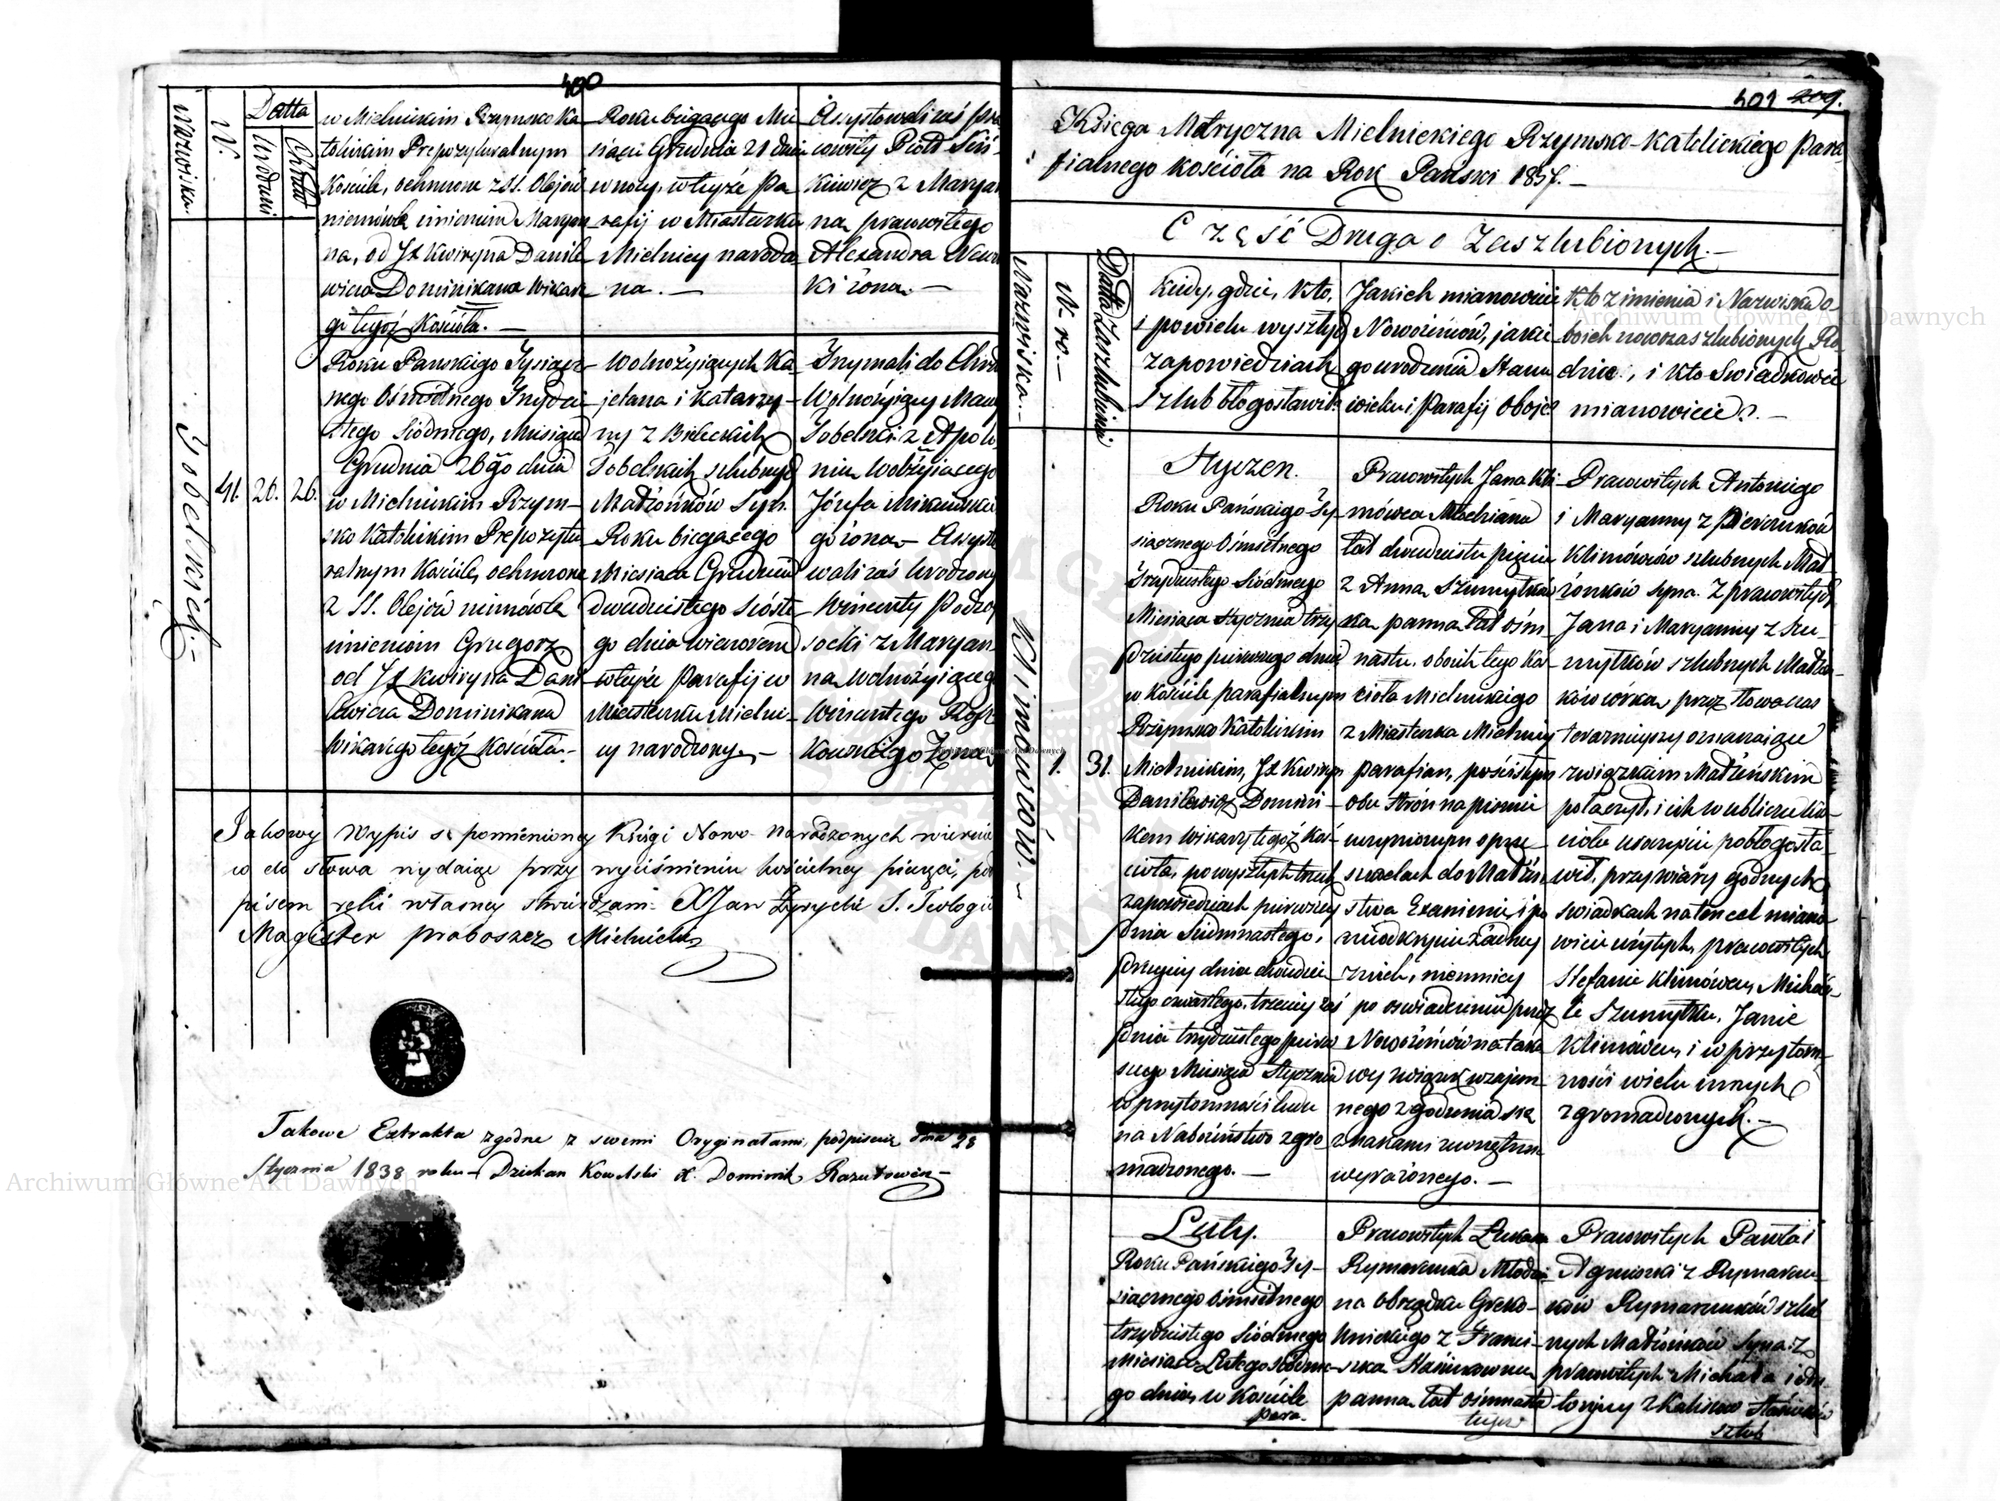 400
Nazwiska
N.
Datta
Urodzin
Chrztu
w Mielnickim Rzymsko Ka-
tolickim Prepozyturalnym
Kościele, ochrzcone z SS. Olejów
niemówlę imieniem Maryan-
na, od JX Kwiryna Danile-
wicza Dominikana Wikare-
go tegoż Kościoła. —
Roku bieżącego Mie-
siąca Grudnia 21 dnia
w nocy, w tejże Pa-
rafij w Miasteczku
Mielnicy narodzo-
na. —
Assystowali zaś pra-
cowity Piotr
z Maryan-
na pracowitego
Alexandra
ki żona. —
Sobelskich. —
41.
26.
26.
Roku Pańskiego Tysiącz-
nego Ośmsetnego Trzydzie-
stego Siódmego, Miesiąca
Grudnia 26go dnia
w Mielnickim Rzym-
sko Katolickim Prepozytu-
ralnym Kościele, ochrzcone
z SS. Olejów niemówlę
imieniem Grzegorz,
od JX Kwiryna Dani-
lewicza Dominikana
Wikarego tegoż Kościoła. —
Wolnożyjących Ka-
jetana i Katarzy-
ny z Bieleckich
Sobelskich szlubnych
Małżonków Syn.
Roku bieżącego
Miesiąca Grudnia
dwudziestego szóste-
go dnia wieczorem
w tejże Parafij w
Miasteczku Mielni-
cy narodzony. —
Trzymali do Chrztu
Wolnożyjący
Sobelski z Apolo-
nią Wolnżyjącego
Józefa
go żona. — Assysto-
wali zaś Urodzony
Wincenty Podwy-
socki z Maryan-
na, wolnożyjącego
Wincentego
kowskiego Żona.
Takowy Wypis z pomienioney Księgi Nowo-narodzonych wiernie
w do słowa wydaiąc przy wyciśnieniu kościelney pieczęci, pod-
pisem ręki własney stwierdzam. XJan Zyrycki S. Teologii
Magister proboszcz Mielnicki
Takowe Extrakta zgodne z swemi Oryginałami podpisuie dnia 28
Stycznia 1838 roku — Dziekan Kowelski X. Dominik Razutowicz —
401 209.
Księga Metryczna Mielnickiego Rzymsko-Katolickiego Para-
fialnego kościoła na Rok Pański 1837. —
Część Druga o Zaszlubionych. —
Nazwiska. —
N-ro. —
Datta Zaszlubin
Kiedy, gdzie, kto,
i powielu wyszłych
zapowiedziach
Szlub błogosławił.
Jakich mianowicie
Nowożeńców, jakie-
go urodzenia Stanu
wieku i Parafij oboje
Kto z imienia i Nazwiska o-
boich nowozaszlubionych Ro-
dzice, i kto Świadkowie
mianowicie? —
Klimowów. —
1.
31.
Styczeń.
Roku Pańskiego Ty-
siącznego Ośmsetnego
Trzydziestego Siódmego
Miesiąca Stycznia trzy-
dziestego pierwszego dnia
w Kościele parafialnym
Rzymsko Katolickim
Mielnickim, JX Kwiryn
Danilewicz Domini-
kan Wikary tegoż Koś-
cioła, po wyszłych trzech
zapowiedziach pierwszey
dnia Siedmnastego,
drugiey dnia dwudzie-
stego czwartego, trzeciey zaś
dnia trzydziestego pierw-
szego Miesiąca Stycznia
w przytomności ludu
na Nabożeństwo zgro-
madzonego. —
Pracowitych Jana Kli-
mówca Młodziana
lat dwudziestu pięciu
z Anną Szumytków-
ną panną lat ośm-
nastu, oboich tego Ko-
ścioła Mielnickiego
z Miasteczka Mielnicy
parafian, pościsłym
obu Stron na piśmie
uczynionym o prze-
szkodach do Małżeń-
stwa Examenie, i po
nieodkryciu żadney
z nich, niemniey
po oświadczeniu przez
Nowożeńców na tako-
wy związek wzajem-
nego zgodzenia się
znakami zewnętrzn.
wyrażonego. —
Pracowitych Antoniego
i Maryanny z
Klimówców szlubnych Mał-
żonków syna. Z pracowitych
Jana i Maryanny z Szu-
mytków szlubnych Małżon-
ków córka, przez słowa czas
teraźnieyszy oznaczaiące
związkiem Małżeńskim
połączył, i ich w obliczu koś-
cioła uroczyście pobłogosła-
wił, przy wiary godnych
świadkach na ten cel miano-
wicie użytych, pracowitych
Stefanie Klimówcu, Micha-
le Szumytku, Janie
Klimówcu, i w przytom-
ności wielu innych
zgromadzonych. —
Luty.
Roku Pańskiego Ty-
siącznego ośmsetnego
trzydziestego Siódmego
Miesiąca Lutego siódme-
go dnia, w Kościele
para-
Pracowitych Łukasza
Rymarczuka Młodzia-
na obrządku Greko-
Unickiego z Franci-
szką
panną lat ośmnastu
tejże
Pracowitych Pawła i
Agnieszki z
Rymarczuków szlub-
nych Małżonków Syna. Z
pracowitych Michała i
szlub
Archiwum Główne Akt Dawnych
Archiwum Główne Akt Dawnych
Archiwum Główne Akt Dawnych